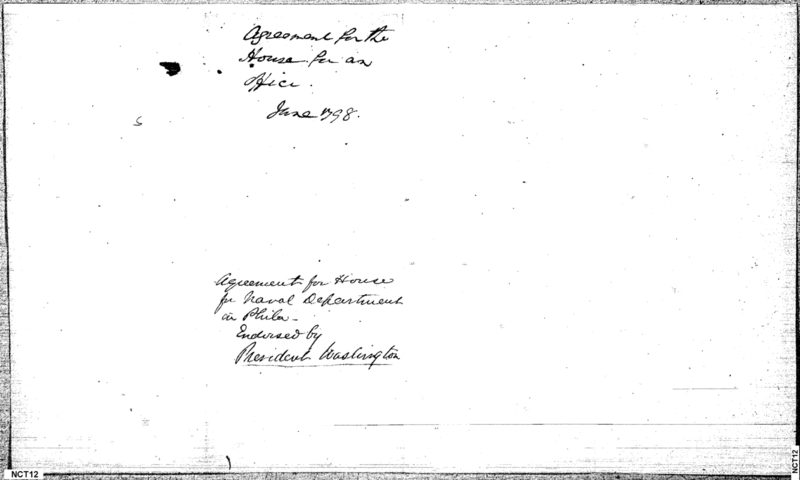 Agreement for the
House for an
Office.
June 1798.
Agreement for House
for Naval Department
in Phila_
Endorsed by
President Washington
NCT12
NCT12